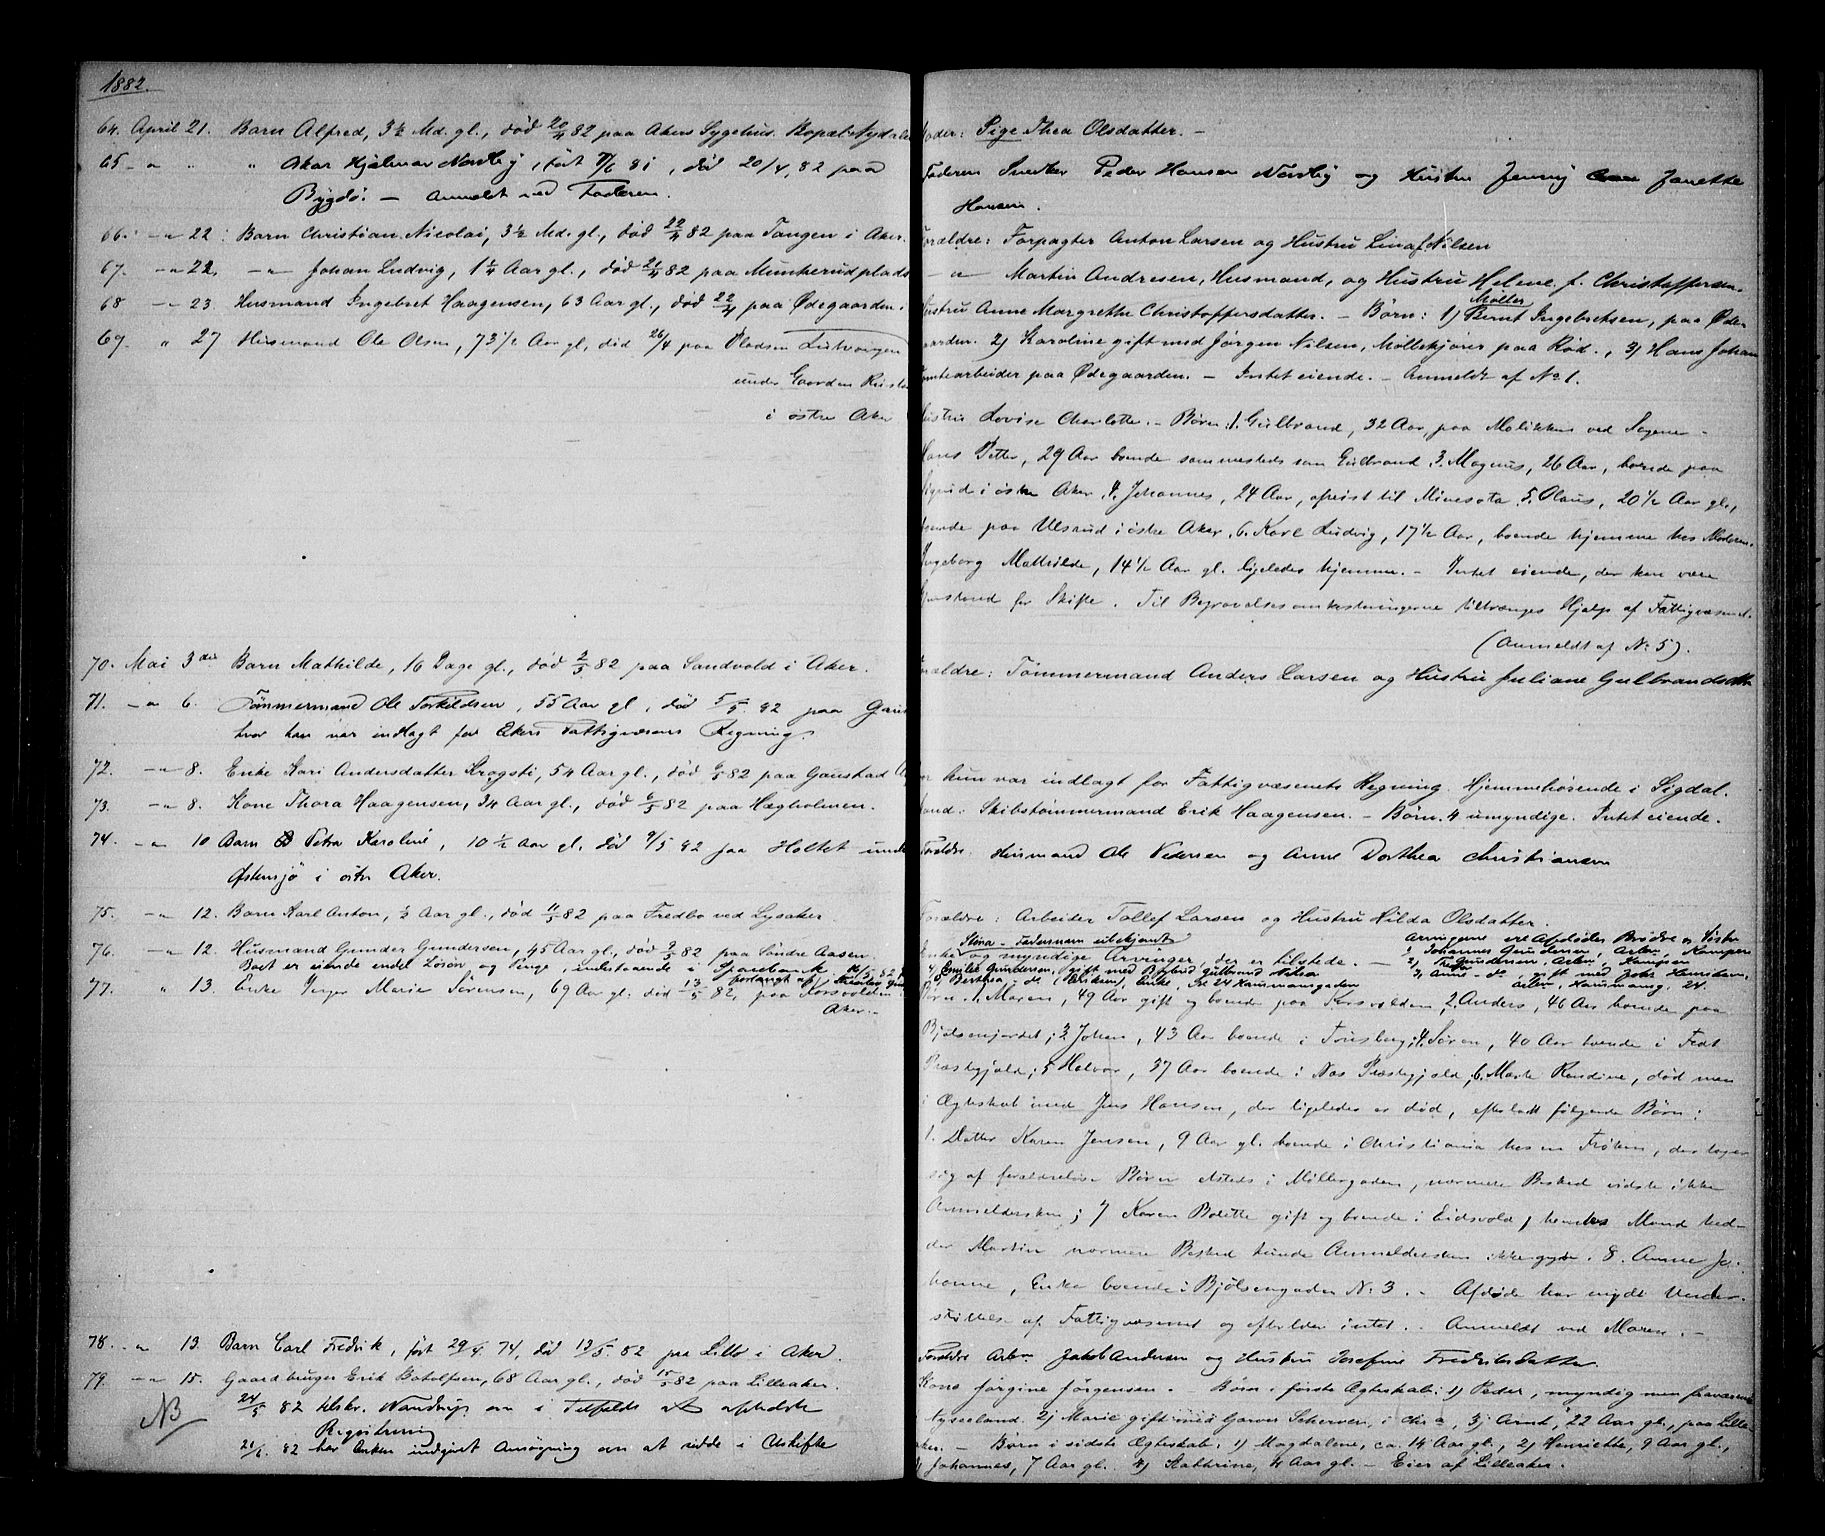 1882.
64. April 21. Barn Alfred, 3½ Md. gl., død 20/4 82 paa Akers Sygehus. Bopæl Nydalen
65 - " " " Oskar Hjalmar Nordlig, født 7/6 81, død 20/4 82 paa
Bygdø. — Anmeldt ved Faderen.
66. -"- 22. Barn Christian Nicolai, 3½ Md. gl., død 22/4 82 paa Tangen i Aker.
67. -"- 22. -"- Johan Ludvig, 1¼ Aar gl., død 21/4 82 paa Munkerudplads
68 -"- 23. Husmand Ingebret Haagensen, 63 Aar gl., død 22/4 paa Ødegaarden
69. " 27 Husmand Ole Olsen, 73½ Aar gl, død 26/4 paa Pladsen
under Gaarden
i østre Aker
70. Mai 3die Barn Mathilde, 16 Dage gl., død 2/5 82 paa Sandvold i Aker.
71. -"- 6. Tømmermand Ole Torkildsen, 55 Aar gl, død 5/5 82 paa Gaus
hvor han var indlagt for Akers Fattigvæsens Regning.
72. -"- 8. Enke Kari Andersdatter Krogsti, 54 Aar gl., død 6/5 82 paa Gaustad
73. -"- 8. Kone Thora Haagensen, 34 Aar gl., død 6/5 82 paa Hegholmen.
74. -"- 10 Barn Petra Karoline, 10½ Aar gl. død 9/5 82 paa Holtet under
Østensjø i østre Aker.
75. -"- 12. Barn Karl Anton, ½ Aar gl., død 11/5 82 paa Fredbo ved Lysaker.
76. -"- 12. Husmand Gunder Gundersen, 45 Aar gl., død 9/5 82 paa Søndre Aasen.
Boet er eiende endel Løsøre og Penge, indestaaende i Sparebank
77. -"- 13. Enke Inger Marie Sørensen, 69 Aar gl. død 13/5 82, paa Korsvolden
Aker.-
78. -"- 13. Barn Carl Fredrik, født 29/4 74, død 13/5 82 paa Lillo i Aker.
79. -"- 15. Gaardbruger Erik Botolfsen, 68 Aar gl., død 15/5 82 paa Lilleaker.
NB 24/5 82 tilskr. Nandrup om i Tilfælde at afholde
Registrering
21/6 82 har Enken indgivet Ansøgning om at sidde i Uskifte
Moder: Pige Thea Olsdatter. —
Faderen Snedker Peder Hansen Nordlig og Hustru Jenny Janette
Hansen.
Forældre: Forpagter Anton Larsen og Hustru Lina f. Nilsen
-"- Martin Andresen, Husmand, og Hustru Helene f. Christoffersen.
Møller
Hustru Anne Margrethe Christoffersdatter. — Børn: 1) Bernt Ingebretsen, paa Øde-
gaarden. 2) Karoline gift med Jørgen Nilsen, Møllekjører paa Rød., 3) Hans Johan
Tomtearbeider paa Ødegaarden. — Intet eiende. — Anmeldt af No 1.
Hustru Lovise Charlotte. — Børn: 1. Gulbrand, 32 Aar, paa Molikken ved Sagene
Hans Petter, 29 Aar boende sammesteds som Gulbrand 3. Magnus, 26 Aar, boende paa
i østre Aker 4. Johannes, 24 Aar, afreist til Minesota 5. Olaus, 20½ Aar gl.,
boende paa Ulsrud i østre Aker. 6. Karl Ludvig, 17½ Aar, boende hjemme hos Moderen.
Ingeborg Mathilde, 14½ Aar gl. ligeledes hjemme. — Intet eiende, der kan være
Gjenstand for Skifte. Til Begravelsesomkostningerne tiltrænges Hjælp af Fattigvæsenet.
(Anmeldt af No 5).
Forældre: Tømmermand Anders Larsen og Hustru Juliane Gulbrandsdtr
hvor hun var indlagt for Fattigvæsenets Regning. Hjemmehørende i Sigdal.
Mand: Skibstømmermand Erik Haagensen. — Børn. 4 umyndige. Intet eiende.
Forældre: Husmand Ole Pedersen og Anne Dorthea Christiansen
Forældre: Arbeider Tollef Larsen og Hustru Hilda Olsdatter.
Enke og myndige Arvinger, der er tilstede. —
Arvingerne ere Afdødes Brødre og Søstre
1) Johannes Gundersen, Arbm. Kampen
2) Gundersen, Arbm. Kampen
3) Anne - do gift med
Arbm., Hammersg. 24.
4) Emilie Gundersen, gift med Gulbrand Nilsen
5) Berthea - do (Eriksen), Enke, 24 Hammersgaden
Børn: 1. Maren, 49 Aar gift og boende paa Korsvolden, 2. Anders, 46 Aar boende paa
Bjølsenjordet; 3 Johan, 43 Aar boende i Tønsberg; 4. Søren, 40 Aar boende i Fet
Præstegjæld; 5 Halvor, 37 Aar boende i Nes Præstegjæld, 6. Marte Randine, død men
i Ægteskab med Jens Hansen, der ligeledes er død, efterladt følgende Børn:
1. Datter Karen Jensen, 9 Aar gl. boende i Christiania hos en Frøken, der tager
sig af forældreløse Børn etsteds i Møllergaden, nærmere Besked vidste ikke
Anmeldersken; 7 Karen Bolette gift og boende i Eidsvold, hendes Mand hed-
der Martin nærmere Besked kunde Anmeldersken ikke give. 8. Anne Jo-
hanne, Enke boende i Bjølsengaden No 3. — Afdøde har nydt Under-
støttelse af Fattigvæsenet og efterlader intet. — Anmeldt ved Maren. —
Forældre Arbm. Jakob Andersen og Hustru Josefine Fredriksdatter.
Kone Jørgine Jørgensen. — Børn i første Ægteskab: 1) Peder, myndig men fraværende
Tydskland. 2) Marie gift med Garver Scherven, i Chra, 3) Arnt, 22 Aar gl., paa Lille-
aker. — Børn i sidste Ægteskab: 1) Magdalene, ca. 14 Aar gl., 2) Henriette, 9 Aar gl.,
3) Johannes, 7 Aar gl. 4) Kathrine, 4 Aar gl. — Eier af Lilleaker.